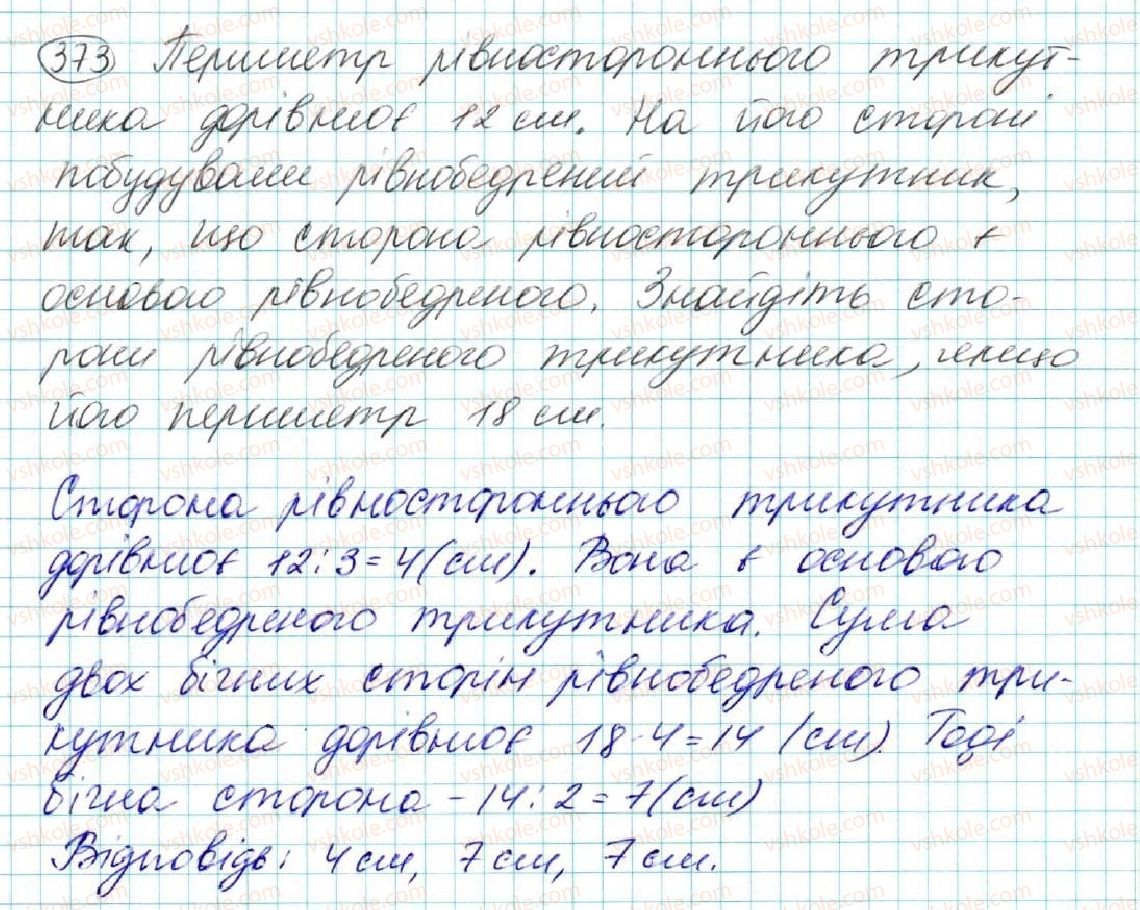 373 Периметр рівностороннього трикут-
ника дорівнює 12 см. На його стороні
побудували рівнобедрений трикутник,
так, що сторона рівностороннього є
основою рівнобедреного. Знайдіть сто-
рони рівнобедреного трикутника, якщо
його периметр 18 см.
Сторона рівностороннього трикутника
дорівнює 12:3=4(см). Вона є основою
рівнобедреного трикутника. Сума
двох бічних сторін рівнобедреного три-
кутника дорівнює 18-4=14 (см). Тоді
бічна сторона - 14:2=7(см)
Відповідь: 4 см, 7 см, 7 см.
vshkole.com